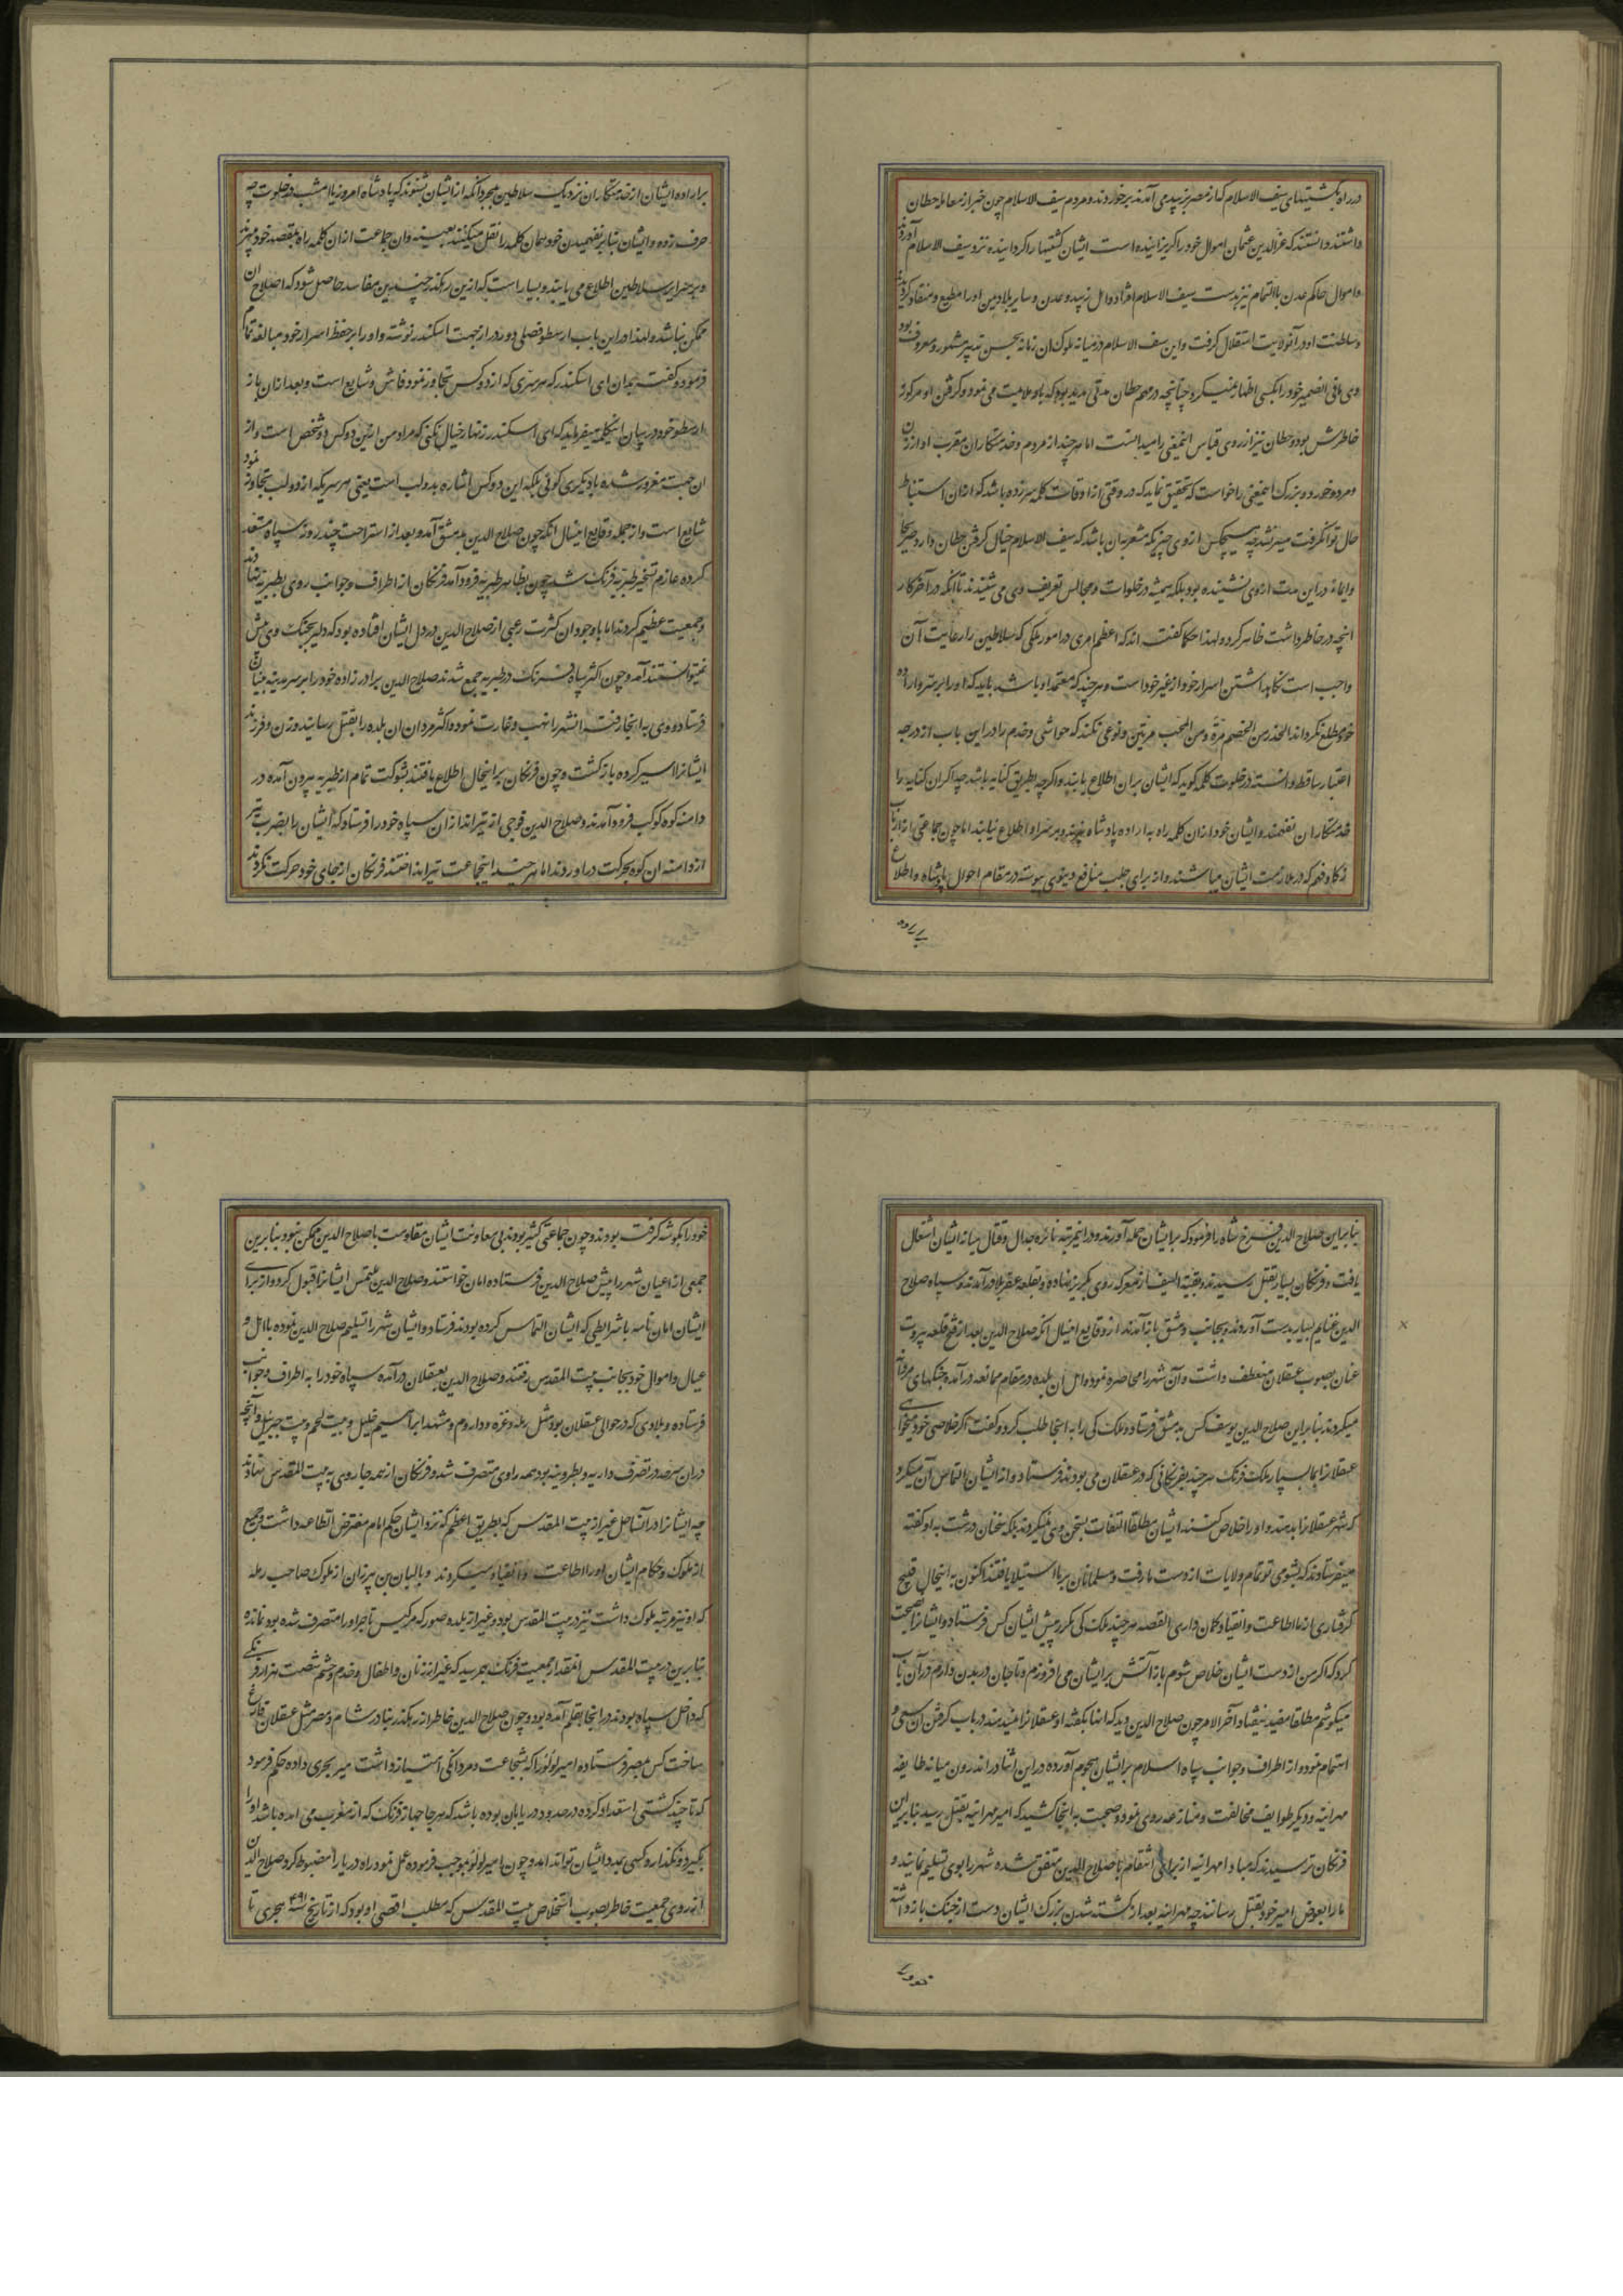 در راه بکشتیهای سیف الاسلام که از مصر بزبید می آمدند برخوردند و مردم سیف الاسلام چون خبر از معامله حطان
داشتند دانستند که عزالدین عثمان اموال خود را گریزانیده است ایشان کشتیها را گردانیده نزد سیف الاسلام آوردند
و اموال حاکم عدن بالتمام نیز بدست سیف الاسلام افتاد و اهل زبید و عدن و سایر بلاد یمن او را مطیع و منقاد گردیدند
و سلطنت او در آنولایت استقلال گرفت و این سیف الاسلام در میانه ملوک ان زمان بحسن تدبیر مشهور و معروف بود
وی مافی الضمیر خود را بکسی اظهار نمیکرد چنانچه در مهم حطان مدتی مدید بود که باو ملایمت می نمود و گرفتن او مرکوز
خاطرش بود و حطان نیز از روی قیاس اینمعنی را میدانست اما هر چند از مردم و خدمتکاران مقرب او از زن
و مرد و خورد و بزرک اینمعنی را خواست که تحقیق نماید که در وقتی از اوقات کلمه سر زده باشد که ازان استنباط
حال توان گرفت میسر نشد چه هیچکس از وی چیزیکه مشعر بان باشد که سیف الاسلام خیال گرفتن حطان دارد صریحا
و ایماء در این مدت از وی نشنیده بود بلکه همیشه در خلوات و مجالس تعریف وی می شنیدند تا آنکه در آخر کار
آنچه در خاطر داشت ظاهر کرد و لهذا حکما گفته اند که اعظم امری در امور ملکی که سلاطین را رعایت آن
واجب است نگاهداشتن اسرار خود از غیر خود است و هر چند که معتمد او باشد باید که او را بر سر و اراده
خود مطلع نگرداند الحذر من الخصم مرة و من المحب مرتین و نوعی نکند که حواشی و خدم را در این باب از درجه
اعتبار ساقط دانسته در خلوت کلمه گوید که ایشان بران اطلاع یابند و اگر چه بطریق کنایه باشد چه اگر ان کنایه را
خدمتکاران نفهمند و ایشان خود ازان کلمه راه به اراده پادشاه نبرند و بر سر او اطلاع نیابند اما چون جماعتی را از ارباب
ذکا و فهم که در ملازمت ایشان میباشند و از برای جلب منافع دنیوی پیوسته در مقام احوال پادشاه و اطلاع
بر اراده
بر اراده ایشان از خدمتکاران نزدیک سلاطین بمجرد آنکه از ایشان بشنوند که پادشاه امروز یا امشب در خلوت چه
حرف زده و ایشان بنابر نفهمیدن خود همان کلمه را نقل میکنند بعینه و ان جماعت ازان کلمه راه بمقصد خود میبرند
و بر ضمایر سلاطین اطلاع می یابند و بسیار است که ازین رهگذر چندین مفاسد حاصل شود که اصلاح ان
ممکن نباشد و لهذا در این باب ارسطو فصلی دور و دراز بجهت اسکندر نوشته و او را بر حفظ اسرار خود مبالغه تمام
فرموده و گفت بدان ای اسکندر که هر سری که از دو کس تجاوز نمود فاش و شایع است و بعد ازان باز
ارسطو خود در بیان اینکلمه میفرماید که ای اسکندر زنهار خیال نکنی که مراد من ازین دو کس دو شخص است و از
ان جهت مغرور شده با دیگری گوئی بلکه این دو کس اشاره بدو لب است یعنی هر سریکه از دو لب تجاوز نمود
شایع است و از جمله وقایع اینسال آنکه چون صلاح الدین بدمشق آمد و بعد از استراحت چند روز سپاه مستعد
کرده عازم تسخیر طبریه فرنک شد چون بظاهر طبریه فرود آمد فرنگان از اطراف و جوانب روی بطبریه نهادند
و جمعیت عظیم کردند اما با وجود ان کثرت رعبی از صلاح الدین در دل ایشان افتاده بود که دلیر بجنک وی پیش
نمیتوانستند آمد و چون اکثر سپاه فرنک در طبریه جمع شدند صلاح الدین برادر زاده خود را بر سر مدینه بیسان
فرستاد و وی به آنجا رفته انشهر را نهب و غارت نمود و اکثر مردان ان بلده را بقتل رسانید و زن و فرزند
ایشانرا اسیر کرده باز گشت و چون فرنگان بر اینحال اطلاع یافتند بشوکت تمام از طبریه بیرون آمده در
دامنه کوه کوکب فرود آمدند و صلاح الدین فوجی از تیراندازان سپاه خود را فرستاد که ایشان را بضرب تیر
از دامنه ان کوه بحرکت دراوردند اما هر چند اینجماعت تیر انداختند فرنگان از جای خود حرکت نکردند
بنابراین صلاح الدین فرخ شاه را فرمود که بر ایشان حمله آورند و در اینمرتبه نائره جدال و قتال میانه ایشان اشتعال
یافت و فرنگان بسیار بقتل رسیدند و بقیة السیف از معرکه روی بگریز نهاده و بقلعه عفربلا درآمدند و سپاه صلاح
الدین غنایم بسیار بدست آورده و بجانب دمشق باز آمدند از وقایع اینسال آنکه صلاح الدین بعد از فتح قلعه بیروت
عنان بصوب عسقلان منعطف داشت و آن شهر را محاصره نمود و اهل آن بلده در مقام ممانعه درآمده جنگهای مردانه
میکردند بنابراین صلاح الدین یوسف کس بدمشق فرستاد و ملک کی را به آنجا طلب کرد و گفت اگر خلاصی خود میخواهی
عسقلانرا بما بسپار ملک فرنک هر چند بفرنگانی که در عسقلان می بودند فرستاد و از ایشان التماس آن میکرد
که شهر عسقلانرا بدهند و او را خلاص کنند ایشان مطلقا التفات بسخن وی نمیکردند بلکه سخنان درشت به او گفته
میفرستادند که بشومی تو تمام ولایات از دست ما رفت و مسلمانان بر ما استیلا یافتند اکنون به اینحال قبیح
گرفتاری از ما اطاعت و انقیاد گمان داری القصه هر چند ملک کی مکرر پیش ایشان کس فرستاد و ایشانرا نصیحت
کرد که اگر من از دست ایشان خلاص شوم باز آتش بر ایشان می افروزم و تا جان در بدن دارم در آن باب
میکوشم مطلقا مفید نیفتاد و آخر الامر چون صلاح الدین دید که اینها بگفته او عسقلانرا نمیدهند در باب گرفتن ان سعی و
اهتمام نمود و از اطراف و جوانب سپاه اسلام بر ایشان هجوم آورده در این اثنا در اندرون میانه طایفه
مهرانیه و دیگر طوایف مخالفت و منازعه روی نمود و صحبت به آنجا کشید که امیر مهرانیه بقتل رسید بنابراین
فرنگان ترسیدند که مبادا مهرانیه از برای انتقام با صلاح الدین متفق شده شهر را بوی تسلیم نمایند و
ما را بعوض امیر خود بقتل رسانند چه مهرانیه بعد از کشته شدن بزرک ایشان دست از جنک باز داشته
خود را
خود را بگوشه گرفته بودند و چون جماعتی کثیر بودند بی معاونت ایشان مقاومت با صلاح الدین ممکن نبود بنابرین
جمعی از اعیان شهر را پیش صلاح الدین فرستاده امان خواستند و صلاح الدین ملتمس ایشانرا قبول کرد و از برای
ایشان امان نامه با شرایطی که ایشان التماس کرده بودند فرستاد و ایشان شهر را تسلیم صلاح الدین نموده با اهل و
عیال و اموال خود بجانب بیت المقدس رفتند و صلاح الدین بعسقلان درآمده سپاه خود را به اطراف و جوانب
فرستاده و بلادی که در حوالی عسقلان بود مثل رمله و غزه و داروم و مشهد ابراهیم خلیل و بیت لحم و بیت جبریل و آنچه
دران سرحد در تصرف داریه و بطرونیه بود همه را وی متصرف شد و فرنگان از همه جا روی به بیت المقدس نهادند
چه ایشانرا در آن ساحل غیر از بیت المقدس که بطریق اعظم که نزد ایشان حکم امام مفترض الطاعه داشت و جمیع
از ملوک و حکام ایشان او را اطاعت و انقیاد میکردند و بالیان بن بیرزان از ملوک صاحب رمله
که او نیز مرتبه ملوک داشت نیز در بیت المقدس بود و غیر از بلده صور که مرکیس تاجر او را متصرف شده بود نمانده
بنابرین در بیت المقدس انقدر جمعیت فرنک بهم رسید که غیر از زنان و اطفال و خدم و حشم شصت هزار فرنگی
که داخل سپاه بودند در آنجا بقلم آمده بود و چون صلاح الدین خاطر از رهگذر بنادر شام و مصر مثل عسقلان فارغ
ساخت کس بمصر فرستاده امیر لؤلؤ را که بشجاعت و مردانگی امتیاز داشت میر بحری داده حکم فرمود
که تا چند کشتی استعداد کرده در صدود دریابان بوده باشد که هر جا جهاز فرنک که از مغرب می امده باشد او را
بگیرد و نگذارد و کسی بمدد ایشان تواند امد و چون امیر لؤلؤ بموجب فرموده عمل نمود راه دریا را مضبوط کرد صلاح الدین
از روی جمعیت خاطر بصوب استخلاص بیت المقدس که مطلب اقصی او بود که از تاریخ سنه ۴۹۱ هجری تا